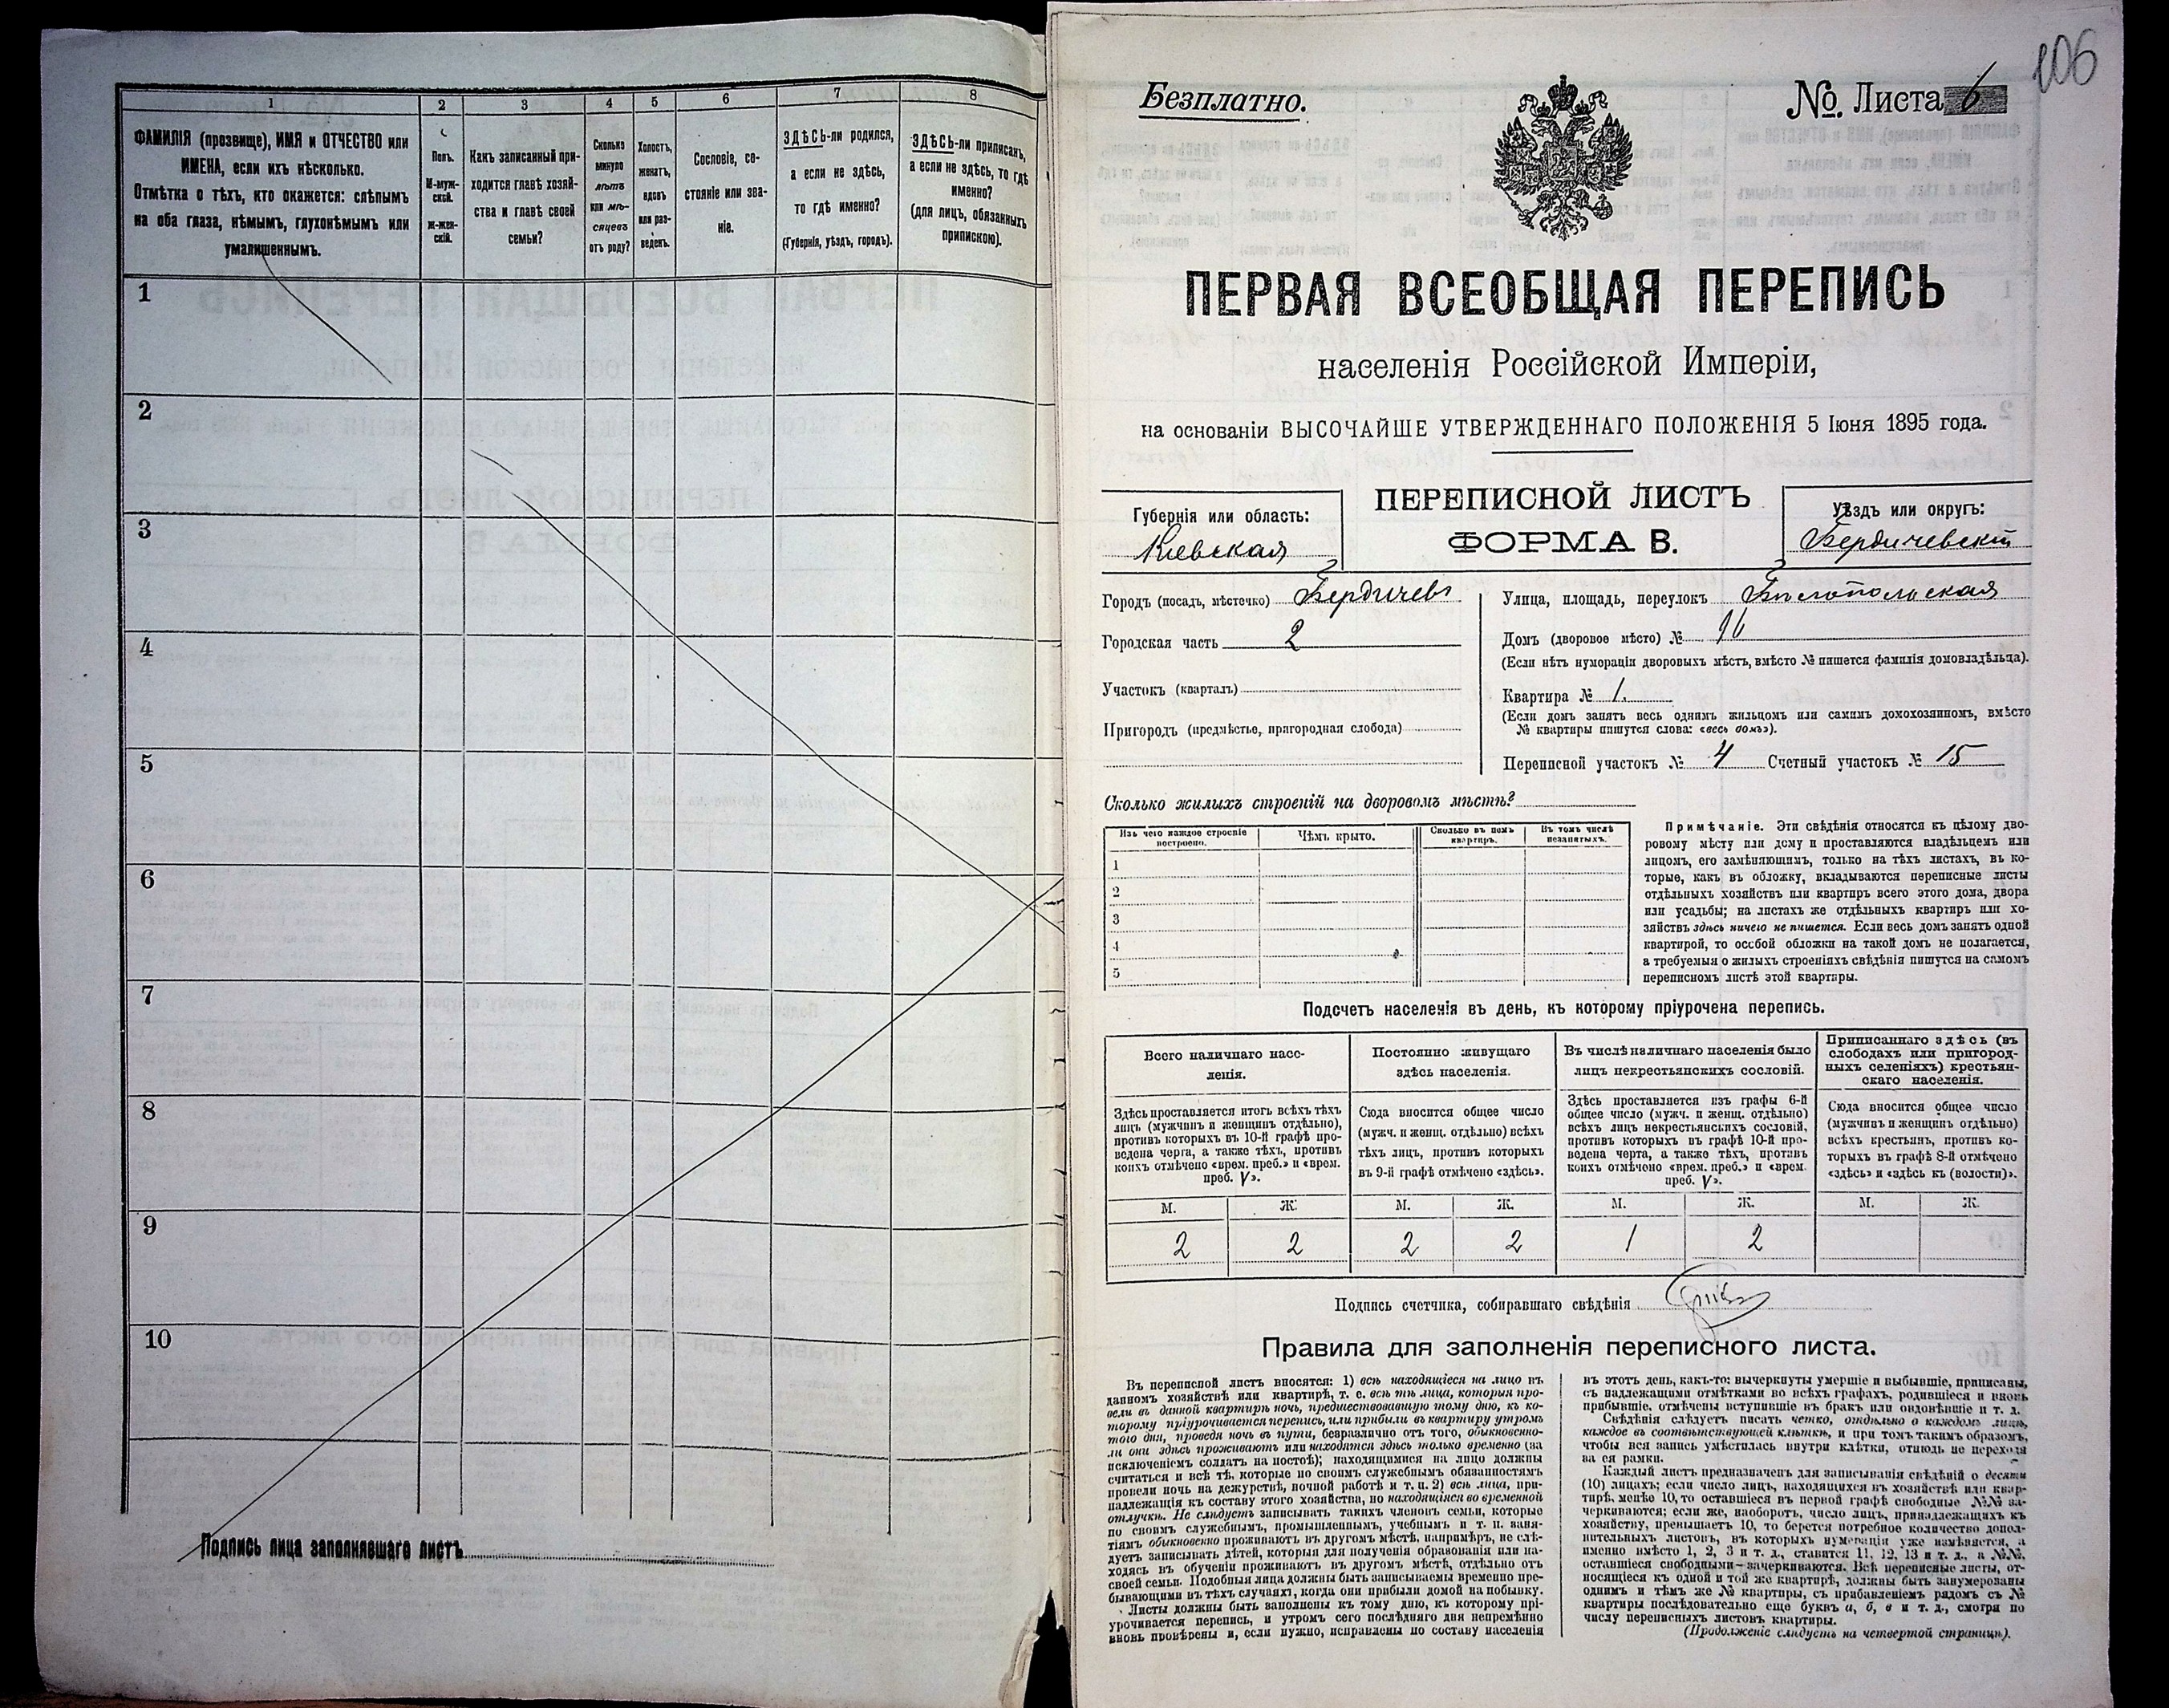 1
2
3
4
5
6
7
8
ФАМИЛІЯ (прозвище), ИМЯ и ОТЧЕСТВО или
ИМЕНА, если ихъ нѣсколько.
Отмѣтка о тѣхъ, кто окажется: слѣпымъ
на оба глаза, нѣмымъ, глухонѣмымъ или
умалишеннымъ.
Полъ.
М-муж-
ской.
Ж-жен-
скій.
Какъ записанный при-
ходится главѣ хозяй-
ства и главѣ своей
семьи?
Сколько
минуло
лѣтъ
или мѣ-
сяцевъ
отъ роду?
Холостъ,
женатъ,
вдовъ
или раз-
веденъ.
Сословіе, со-
стояніе или зва-
ніе.
ЗДѢСЬ-ли родился,
а если не здѣсь,
то гдѣ именно?
(Губернія, уѣздъ, городъ).
ЗДѢСЬ-ли приписанъ,
а если не здѣсь, то гдѣ
именно?
(для лицъ, обязанныхъ
припискою).
1
2
3
4
5
6
7
8
9
10
Подпись лица заполнявшаго листъ
106
Безплатно.
№. Листа 6
ПЕРВАЯ ВСЕОБЩАЯ ПЕРЕПИСЬ
населенія Россійской Имперіи,
на основаніи ВЫСОЧАЙШЕ УТВЕРЖДЕННАГО ПОЛОЖЕНІЯ 5 Іюня 1895 года.
Губернія или область:
Кіевская
ПЕРЕПИСНОЙ ЛИСТЪ
ФОРМА В.
Уѣздъ или округъ:
Бердичевскій
Городъ (посадъ, мѣстечко) Бердичевъ
Городская часть 2
Участокъ (кварталъ)
Пригородъ (предмѣстье, пригородная слобода)
Улица, площадь, переулокъ Бѣлопольская
Домъ (дворовое мѣсто) № 16
(Если нѣтъ нумораціи дворовыхъ мѣстъ, вмѣсто № пишется фамилія домовладѣльца).
Квартира № 1.
(Если домъ занятъ весь однимъ жильцомъ или самимъ домохозяиномъ, вмѣсто
№ квартиры пишутся слова: «весь домъ»).
Переписной участокъ № 4 Счетный участокъ № 15
Сколько жилыхъ строеній на дворовомъ мѣстѣ?
Изъ чего каждое строеніе
построено.
Чѣмъ крыто.
Сколько въ немъ
квартиръ.
Въ томъ числѣ
незанятыхъ.
1
2
3
4
5
Примѣчаніе. Эти свѣдѣнія относятся къ цѣлому дво-
ровому мѣсту или дому и проставляются владѣльцемъ или
лицомъ, его замѣняющимъ, только на тѣхъ листахъ, въ ко-
торые, какъ въ обложку, вкладываются переписные листы
отдѣльныхъ хозяйствъ или квартиръ всего этого дома, двора
или усадьбы; на листахъ же отдѣльныхъ квартиръ или хо-
зяйствъ здѣсь ничего не пишется. Если весь домъ занятъ одной
квартирой, то особой обложки на такой домъ не полагается,
а требуемыя о жилыхъ строеніяхъ свѣдѣнія пишутся на самомъ
переписномъ листѣ этой квартиры.
Подсчетъ населенія въ день, къ которому пріурочена перепись.
Всего наличнаго насе-
ленія.
Постоянно живущаго
здѣсь населенія.
Въ числѣ наличнаго населенія было
лицъ некрестьянскихъ сословій.
Приписаннаго здѣсь (въ
слободахъ или пригород-
ныхъ селеніяхъ) крестьян-
скаго населенія.
Здѣсь проставляется итогъ всѣхъ тѣхъ
лицъ (мужчинъ и женщинъ отдѣльно),
противъ которыхъ въ 10-й графѣ про-
ведена черта, а также тѣхъ, противъ
коихъ отмѣчено «врем. преб.» и «врем.
преб. V».
Сюда вносится общее число
(мужч. и женщ. отдѣльно) всѣхъ
тѣхъ лицъ, противъ которыхъ
въ 9-й графѣ отмѣчено «здѣсь».
Здѣсь проставляется изъ графы 6-й
общее число (мужч. и женщ. отдѣльно)
всѣхъ лицъ некрестьянскихъ сословій,
противъ которыхъ въ графѣ 10-й про-
ведена черта, а также тѣхъ, противъ
коихъ отмѣчено «врем. преб.» и «врем.
преб. V».
Сюда вносится общее число
(мужчинъ и женщинъ отдѣльно)
всѣхъ крестьянъ, противъ ко-
торыхъ въ графѣ 8-й отмѣчено
«здѣсь» и «здѣсь къ (волости)».
М. Ж. М. Ж. М. Ж. М. Ж.
2 2 2 2 1 2
Подпись счетчика, собиравшаго свѣдѣнія
Правила для заполненія переписного листа.
Въ переписной листъ вносятся: 1) всѣ находящіеся на лицо въ
данномъ хозяйствѣ или квартирѣ, т. е. всѣ тѣ лица, которыя про-
вели въ данной квартирѣ ночь, предшествовавшую тому дню, къ ко-
торому пріурочивается перепись, или прибыли въ квартиру утромъ
того дня, проведя ночь въ пути, безразлично отъ того, обыкновенно-
ли они здѣсь проживаютъ или находятся здѣсь только временно (за
исключеніемъ солдатъ на постоѣ); находящимися на лицо должны
считаться и всѣ тѣ, которые по своимъ служебнымъ обязанностямъ
провели ночь на дежурствѣ, ночной работѣ и т. п. 2) всѣ лица, при-
надлежащія къ составу этого хозяйства, но находящіяся во временной
отлучкѣ. Не слѣдуетъ записывать такихъ членовъ семьи, которые
по своимъ служебнымъ, промышленнымъ, учебнымъ и т. п. заня-
тіямъ обыкновенно проживаютъ въ другомъ мѣстѣ, напримѣръ, не слѣ-
дуетъ записывать дѣтей, которыя для полученія образованія или на-
ходясь въ обученіи проживаютъ въ другомъ мѣстѣ, отдѣльно отъ
своей семьи. Подобныя лица должны быть записываемы временно пре-
бывающими въ тѣхъ случаяхъ, когда они прибыли домой на побывку.
Листы должны быть заполнены къ тому дню, къ которому прі-
урочивается перепись, и утромъ сего послѣдняго дня непремѣнно
вновь провѣрены и, если нужно, исправлены по составу населенія
въ этотъ день, какъ-то: вычеркнуты умершіе и выбывшіе, приписаны,
съ надлежащими отмѣтками во всѣхъ графахъ, родившіеся и вновь
прибывшіе, отмѣчены вступившіе въ бракъ или овдовѣвшіе и т. д.
Свѣдѣнія слѣдуетъ писать четко, отдѣльно о каждомъ лицѣ,
каждое въ соотвѣтствующей клѣткѣ, и при томъ такимъ образомъ,
чтобы вся запись умѣстилась внутри клѣтки, отнюдь не переходя
за ея рамки.
Каждый листъ предназначенъ для записыванія свѣдѣній о десяти
(10) лицахъ; если число лицъ, находящихся въ хозяйствѣ или квар-
тирѣ, менѣе 10, то оставшіеся въ первой графѣ свободные №№ за-
черкиваются; если же, наоборотъ, число лицъ, принадлежащихъ къ
хозяйству, превышаетъ 10, то берется потребное количество допол-
нительныхъ листовъ, въ которыхъ нумерація уже измѣняется, а
именно вмѣсто 1, 2, 3 и т. д., ставится 11, 12, 13 и т. д., а №№,
оставшіеся свободными—зачеркиваются. Всѣ переписные листы, от-
носящіеся къ одной и той же квартирѣ, должны быть занумерованы
однимъ и тѣмъ же № квартиры, съ прибавленіемъ рядомъ съ №
квартиры послѣдовательно еще буквъ а, б, в и т. д., смотря по
числу переписныхъ листовъ квартиры.
(Продолженіе слѣдуетъ на четвертой страницѣ).